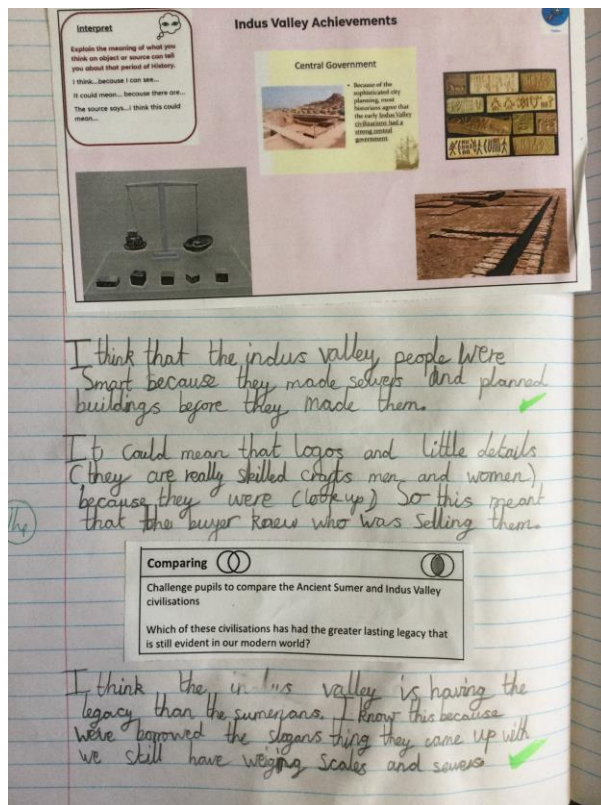 Interpret
Explain the meaning of what you
think an object or source can tell
you about that period of History.
I think...because I can see...
It could mean... because there are...
The source says...I think this could
mean...
Indus Valley Achievements
Central Government
• Because of the
sophisticated city
planning, most
historians agree that
the early Indus Valley
civilisations had a
strong central
government.
I think that the indus valley people were
Smart because they made sewers and planned
buildings before they made them.
It could mean that logos and little details
(they are really skilled crafts men and women)
because they were (look up) So this meant
that the buyer knew who was selling them.
Comparing
Challenge pupils to compare the Ancient Sumer and Indus Valley
civilisations
Which of these civilisations has had the greater lasting legacy that
is still evident in our modern world?
I think the indus valley is having the
legacy than the sumerians. I know this because
were borrowed the slogans thing they came up with
we still have weiging scales and sewers